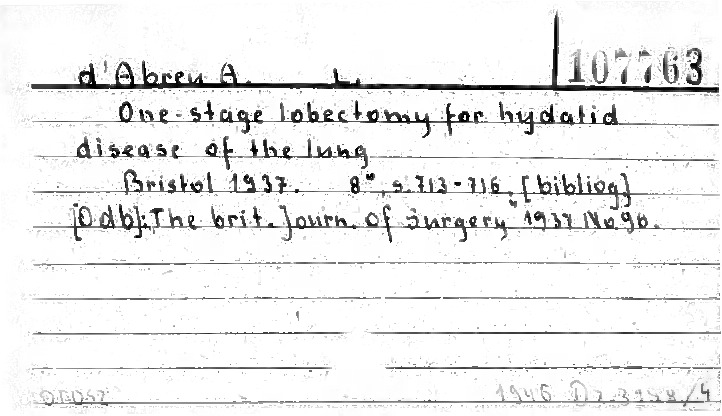 107763
d'Abreu A. L.
One-stage lobectomy for hydatid
disease of the lung
Bristol 1937. 8°, s. 713-716, [bibliog]
[Odb]: The brit. Journ. of Surgery" 1937 No 96.
1946